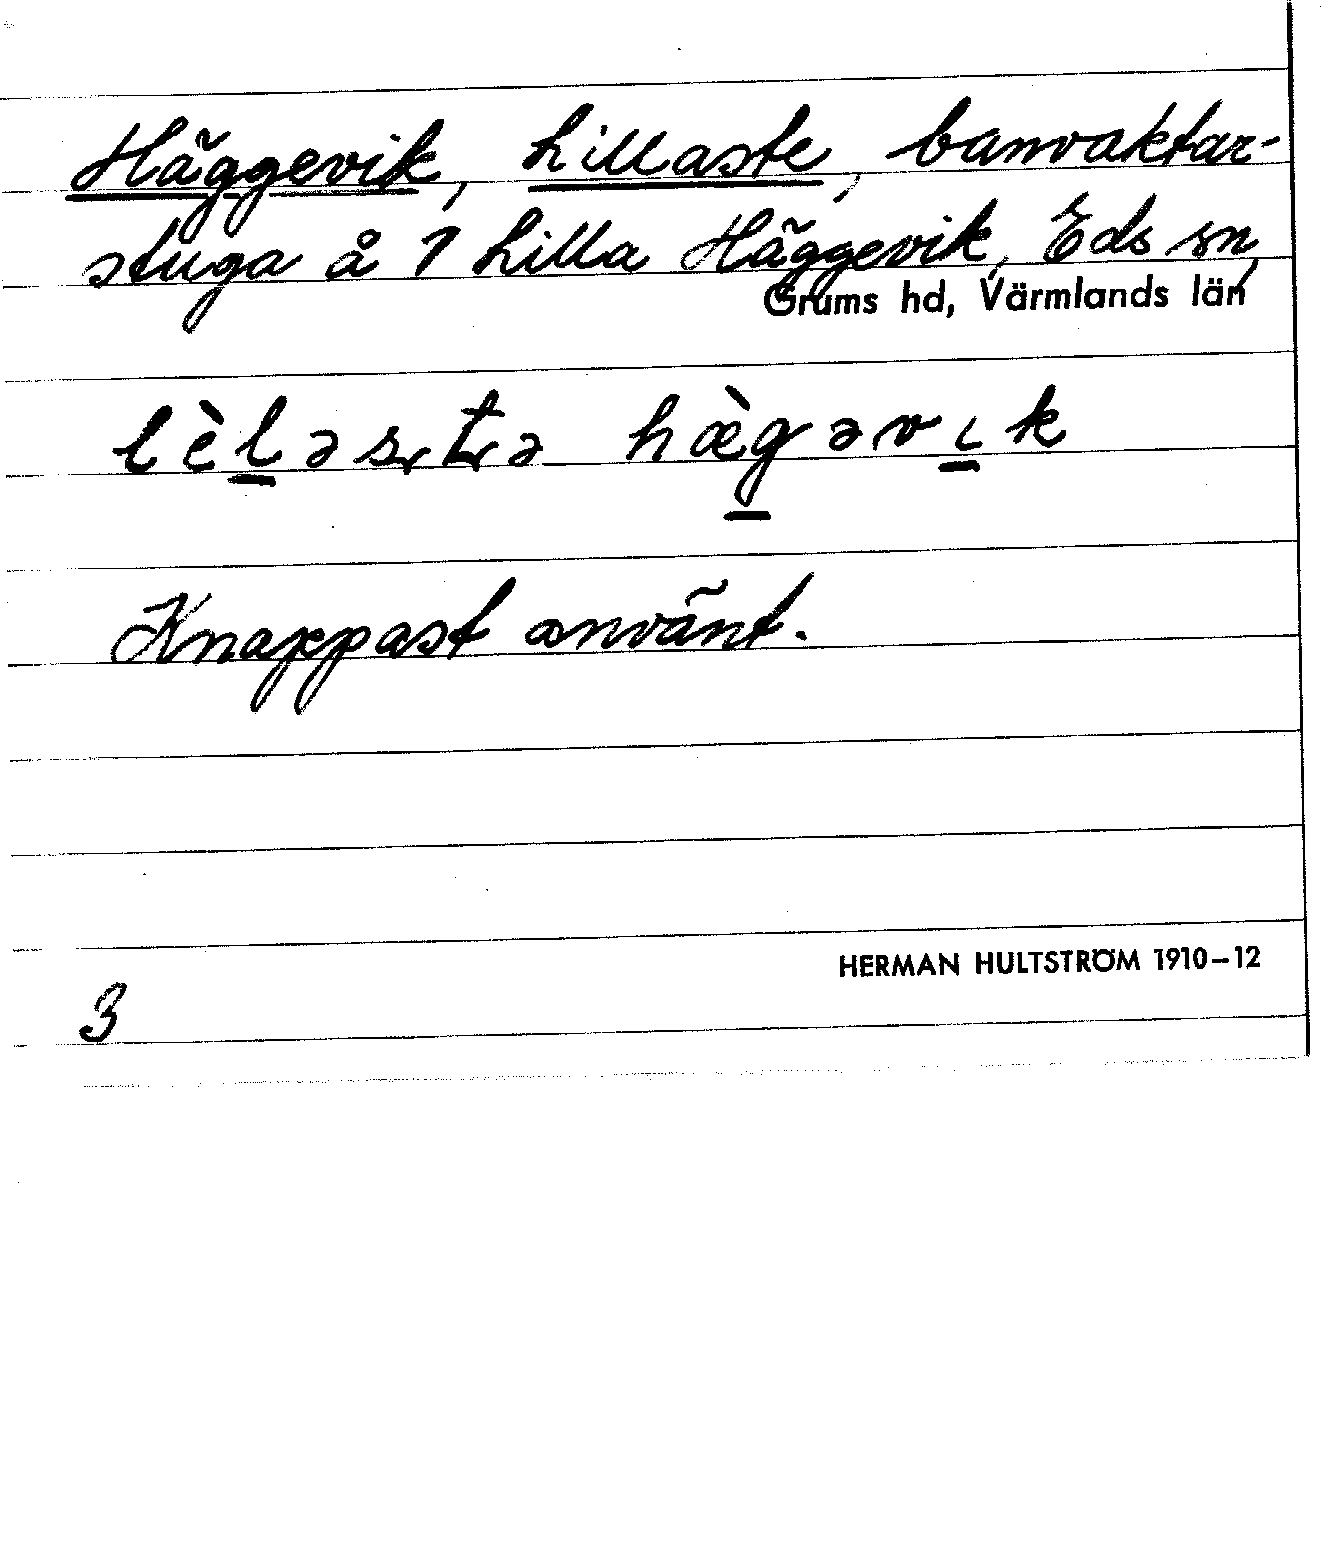 Häggevik, Lillaste, banvaktar-
stuga å 1 Lilla Häggevik, Eds sn,
Grums hd, Värmlands län
lèl̲əsʈə hæ̀g̲əvɩ̲k
Knappast använt.
HERMAN HULTSTRÖM 1910-12
3